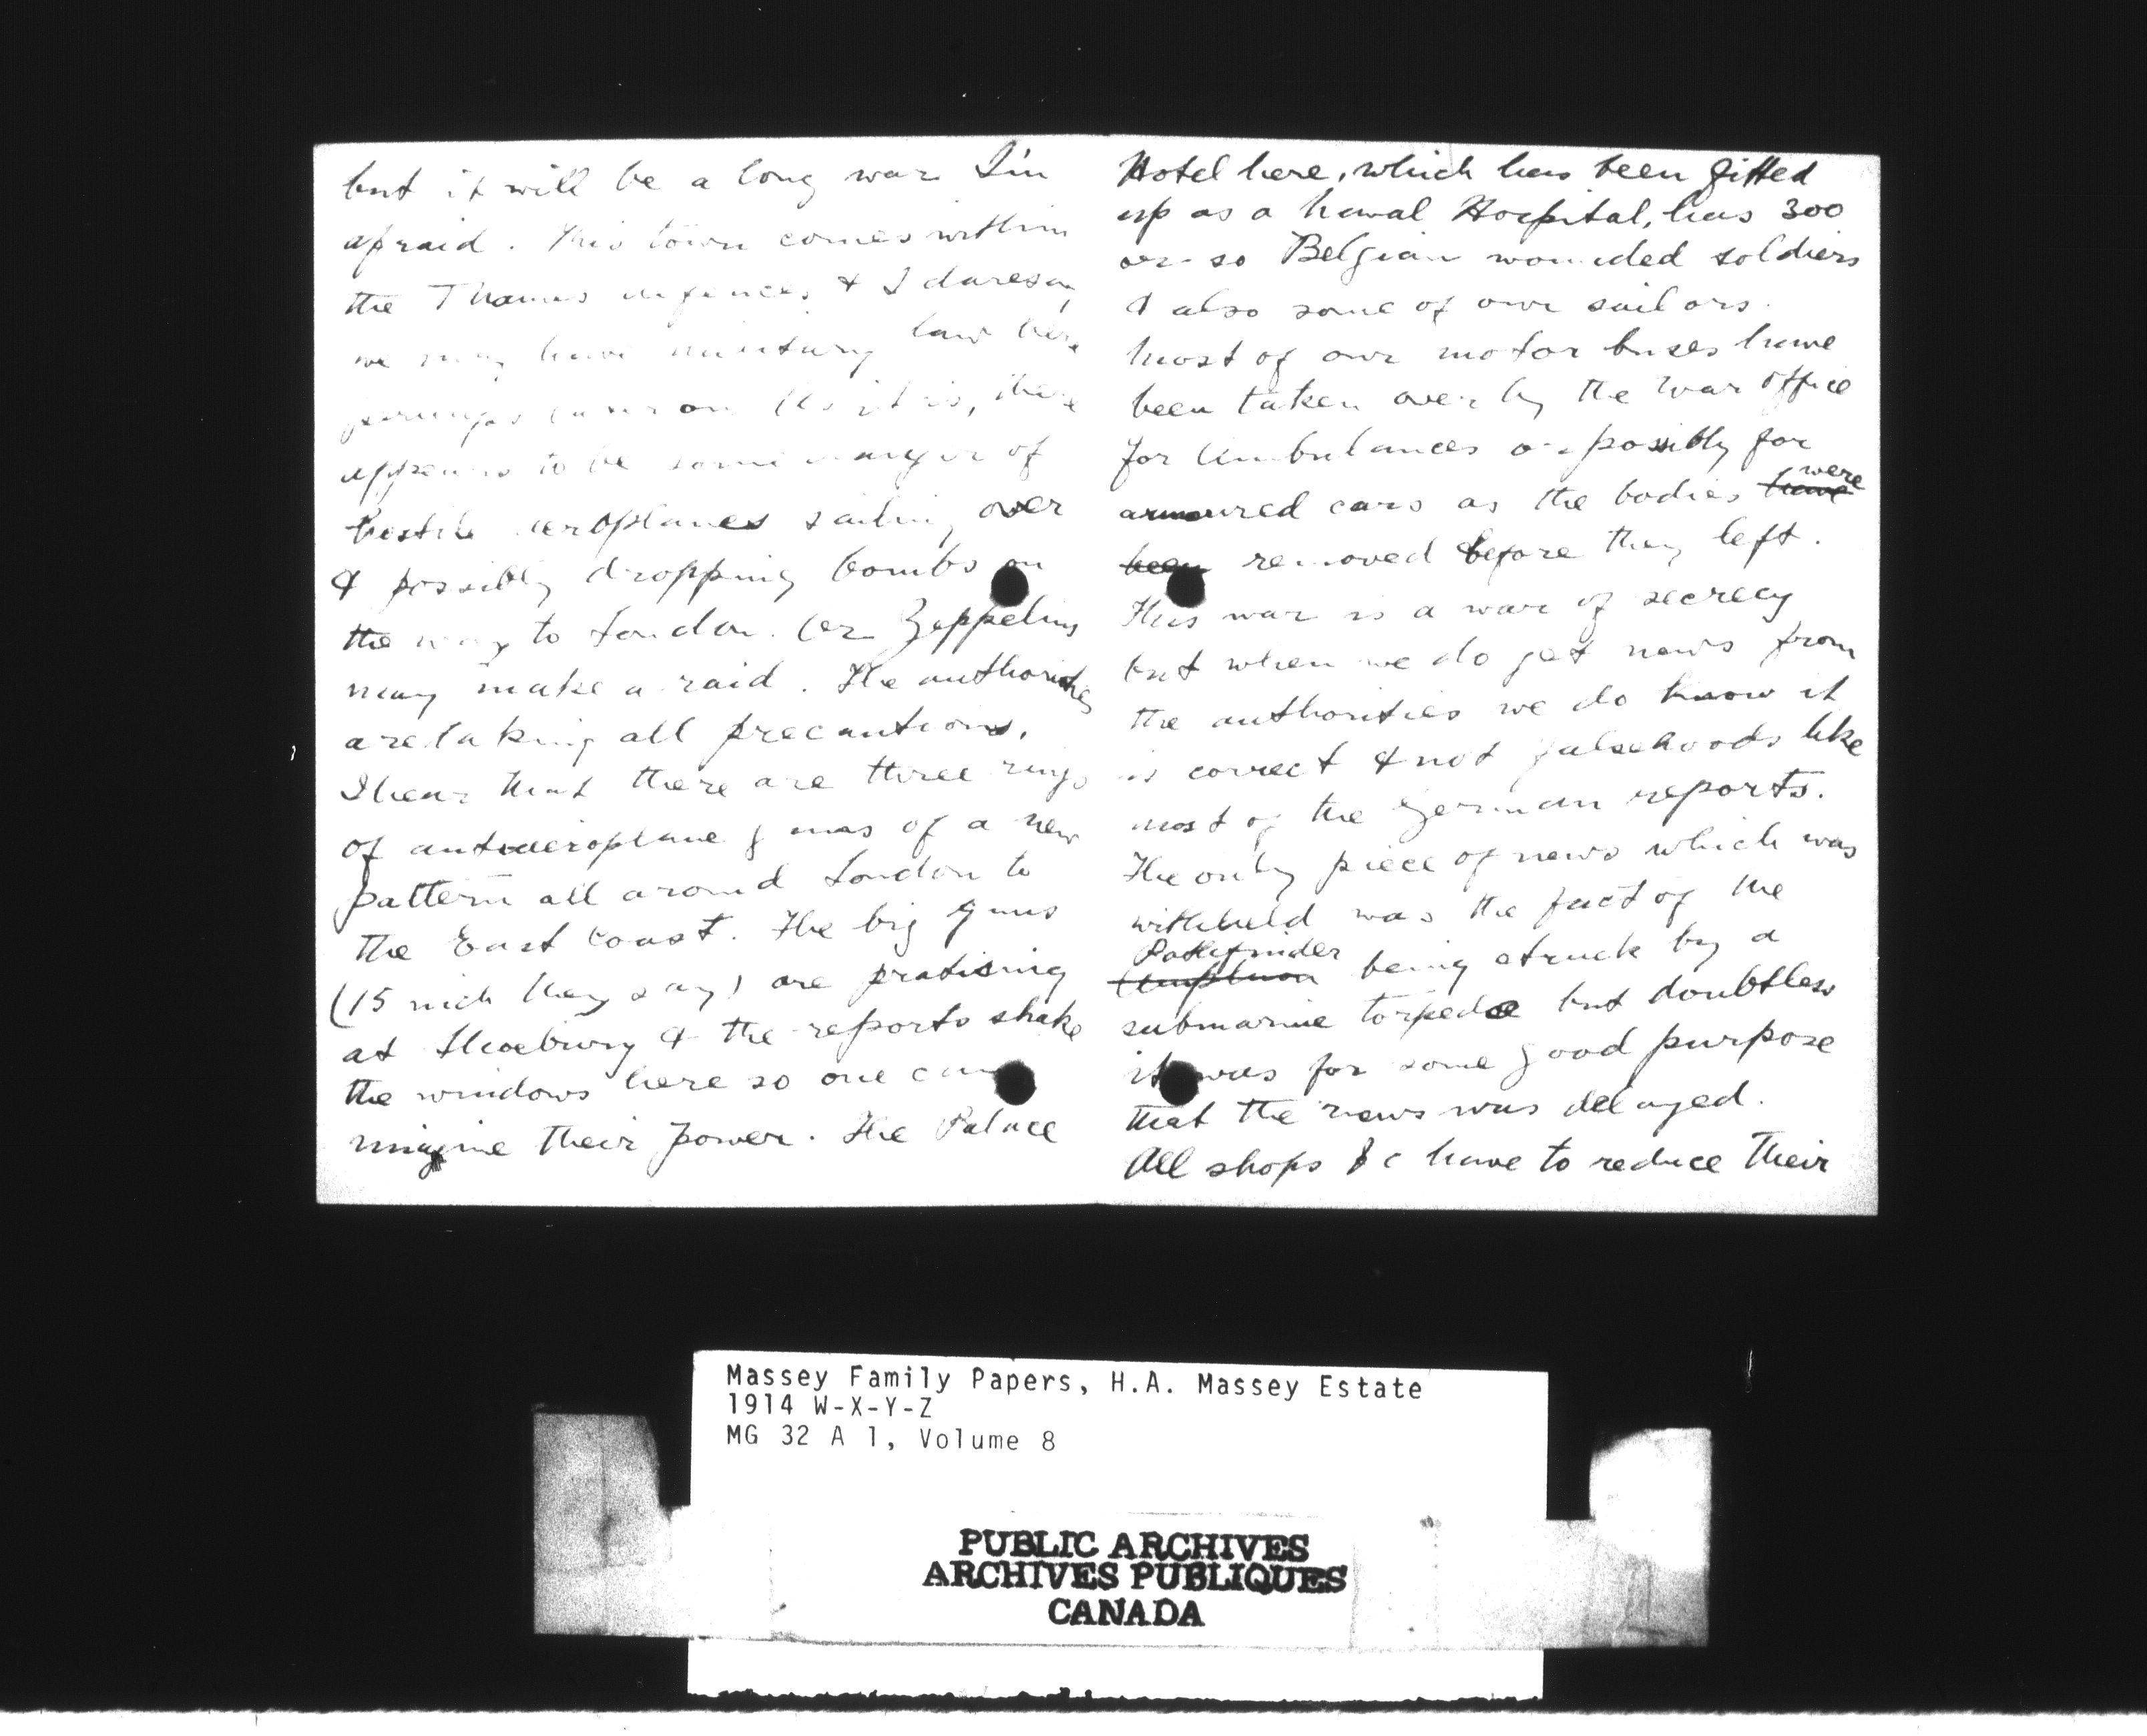 but it will be a long war I'm
afraid. This town comes within
the Thames defences & I daresay
we may have military law here
perhaps later on. As it is, there
appears to be some danger of
hostile aeroplanes sailing over
& possibly dropping bombs on
the way to London. (or Zeppelins
may make a raid. The authorities
are taking all precautions.
I hear that there are three rings
of antiaeroplane guns of a new
pattern all around London to
the East Coast. The big guns
(15 inch they say) are pratising
at Shoebury & the reports shake
the windows here so one can
imagine their power. The Palace
Hotel here, which has been fitted
up as a Naval Hospital, has 300
or so Belgian wounded soldiers
& also some of our sailors.
Most of our motor buses have
been taken over by the War Office
for Ambulances or possibly for
armoured cars as the bodies have were
been removed before they left.
This war is a war of secrecy
but when we do get news from
the authorities we do know it
is correct & not falsehoods like
most of the German reports.
The only piece of news which was
withheld was the fact of the
Pathfinder
being struck by a
submarine torpedoe but doubtless
it was for some good purpose
that the news was delayed.
All shops &c have to reduce their
Massey Family Papers, H.A. Massey Estate
1914 W-X-Y-Z
MG 32 A 1, Volume 8
PUBLIC ARCHIVES
ARCHIVES PUBLIQUES
CANADA